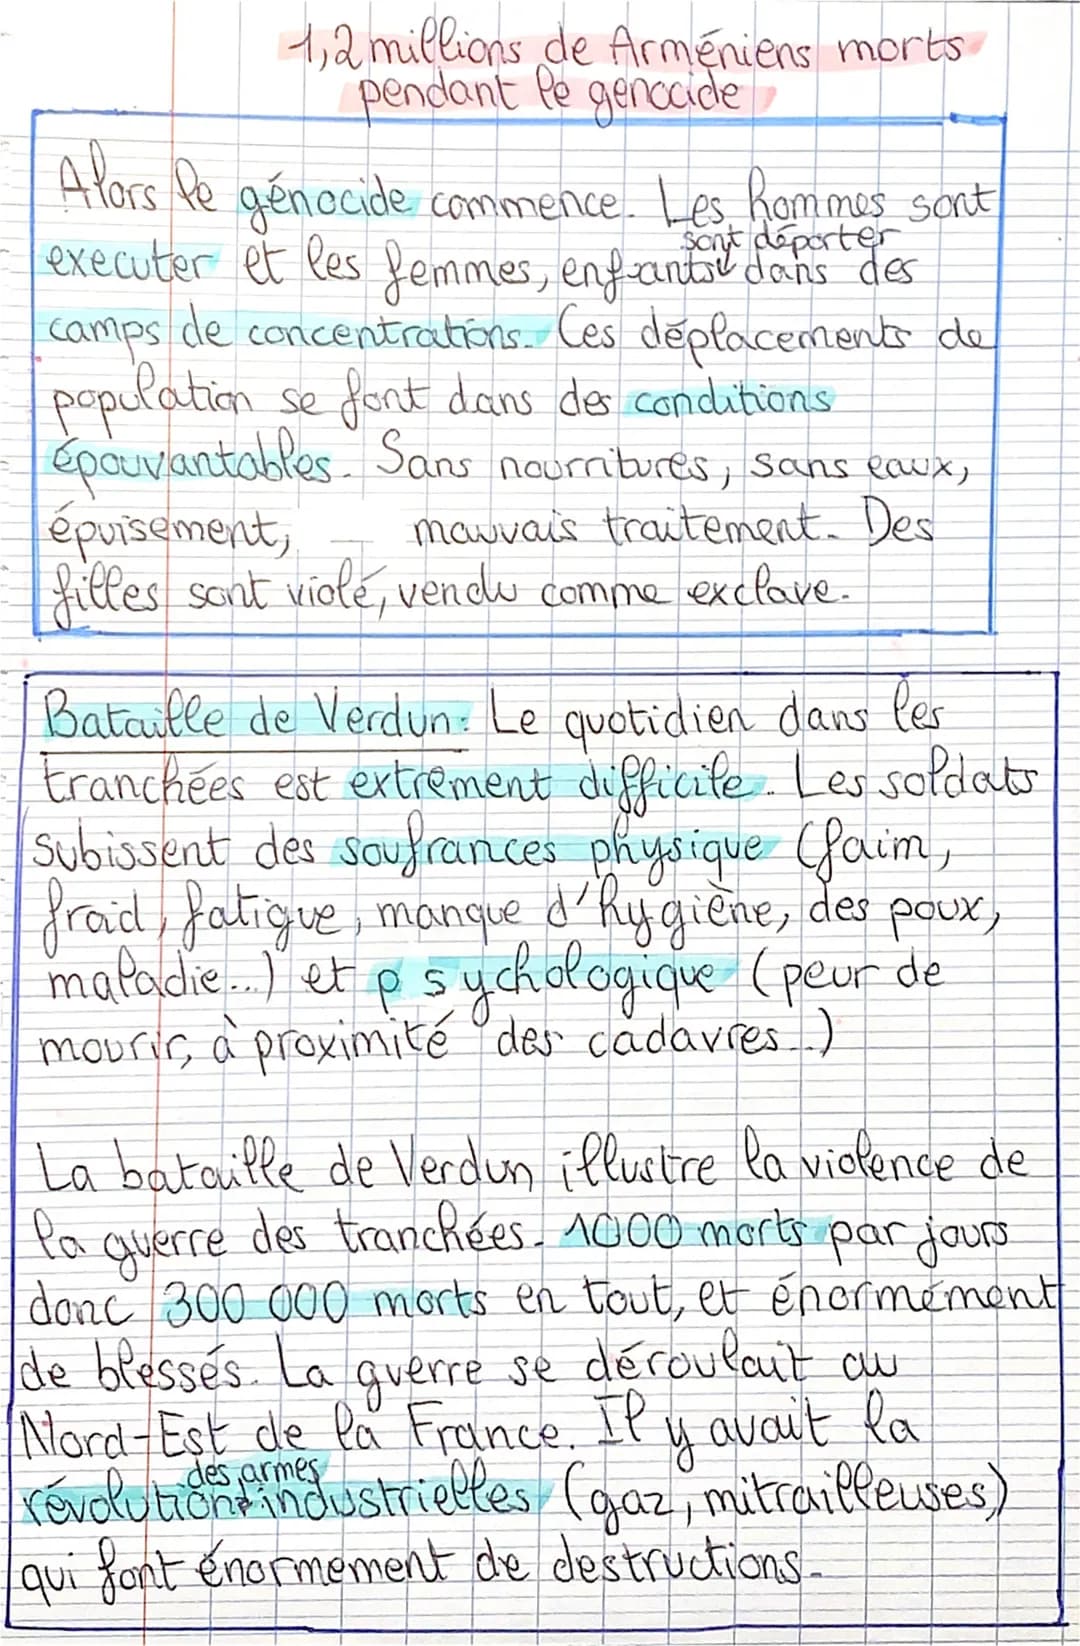 1,2 millions de Arméniens morts
pendant le génocide
Alors le génocide commence. Les hommes sont
executer et les femmes, enfants sont déporter dans des
camps de concentrations. Ces déplacements de
population se font dans des conditions
épouvantables. Sans nourritures, sans eaux,
épuisement, mauvais traitement. Des
filles sont violé, vendu comme exclave.
Bataille de Verdun: Le quotidien dans les
tranchées est extrement difficile. Les soldats
subissent des soufrances physique (faim,
froid, fatigue, manque d'hygiène, des poux,
maladie...) et psychologique (peur de
mourir, à proximité des cadavres...)
La bataille de Verdun illustre la violence de
la guerre des tranchées. 1000 morts par jours
donc 300 000 morts en tout, et énormément
de blessés. La guerre se déroulait au
Nord-Est de la France. Il y avait la
révolution des armes industrielles (gaz, mitrailleuses)
qui font énormement de destructions.